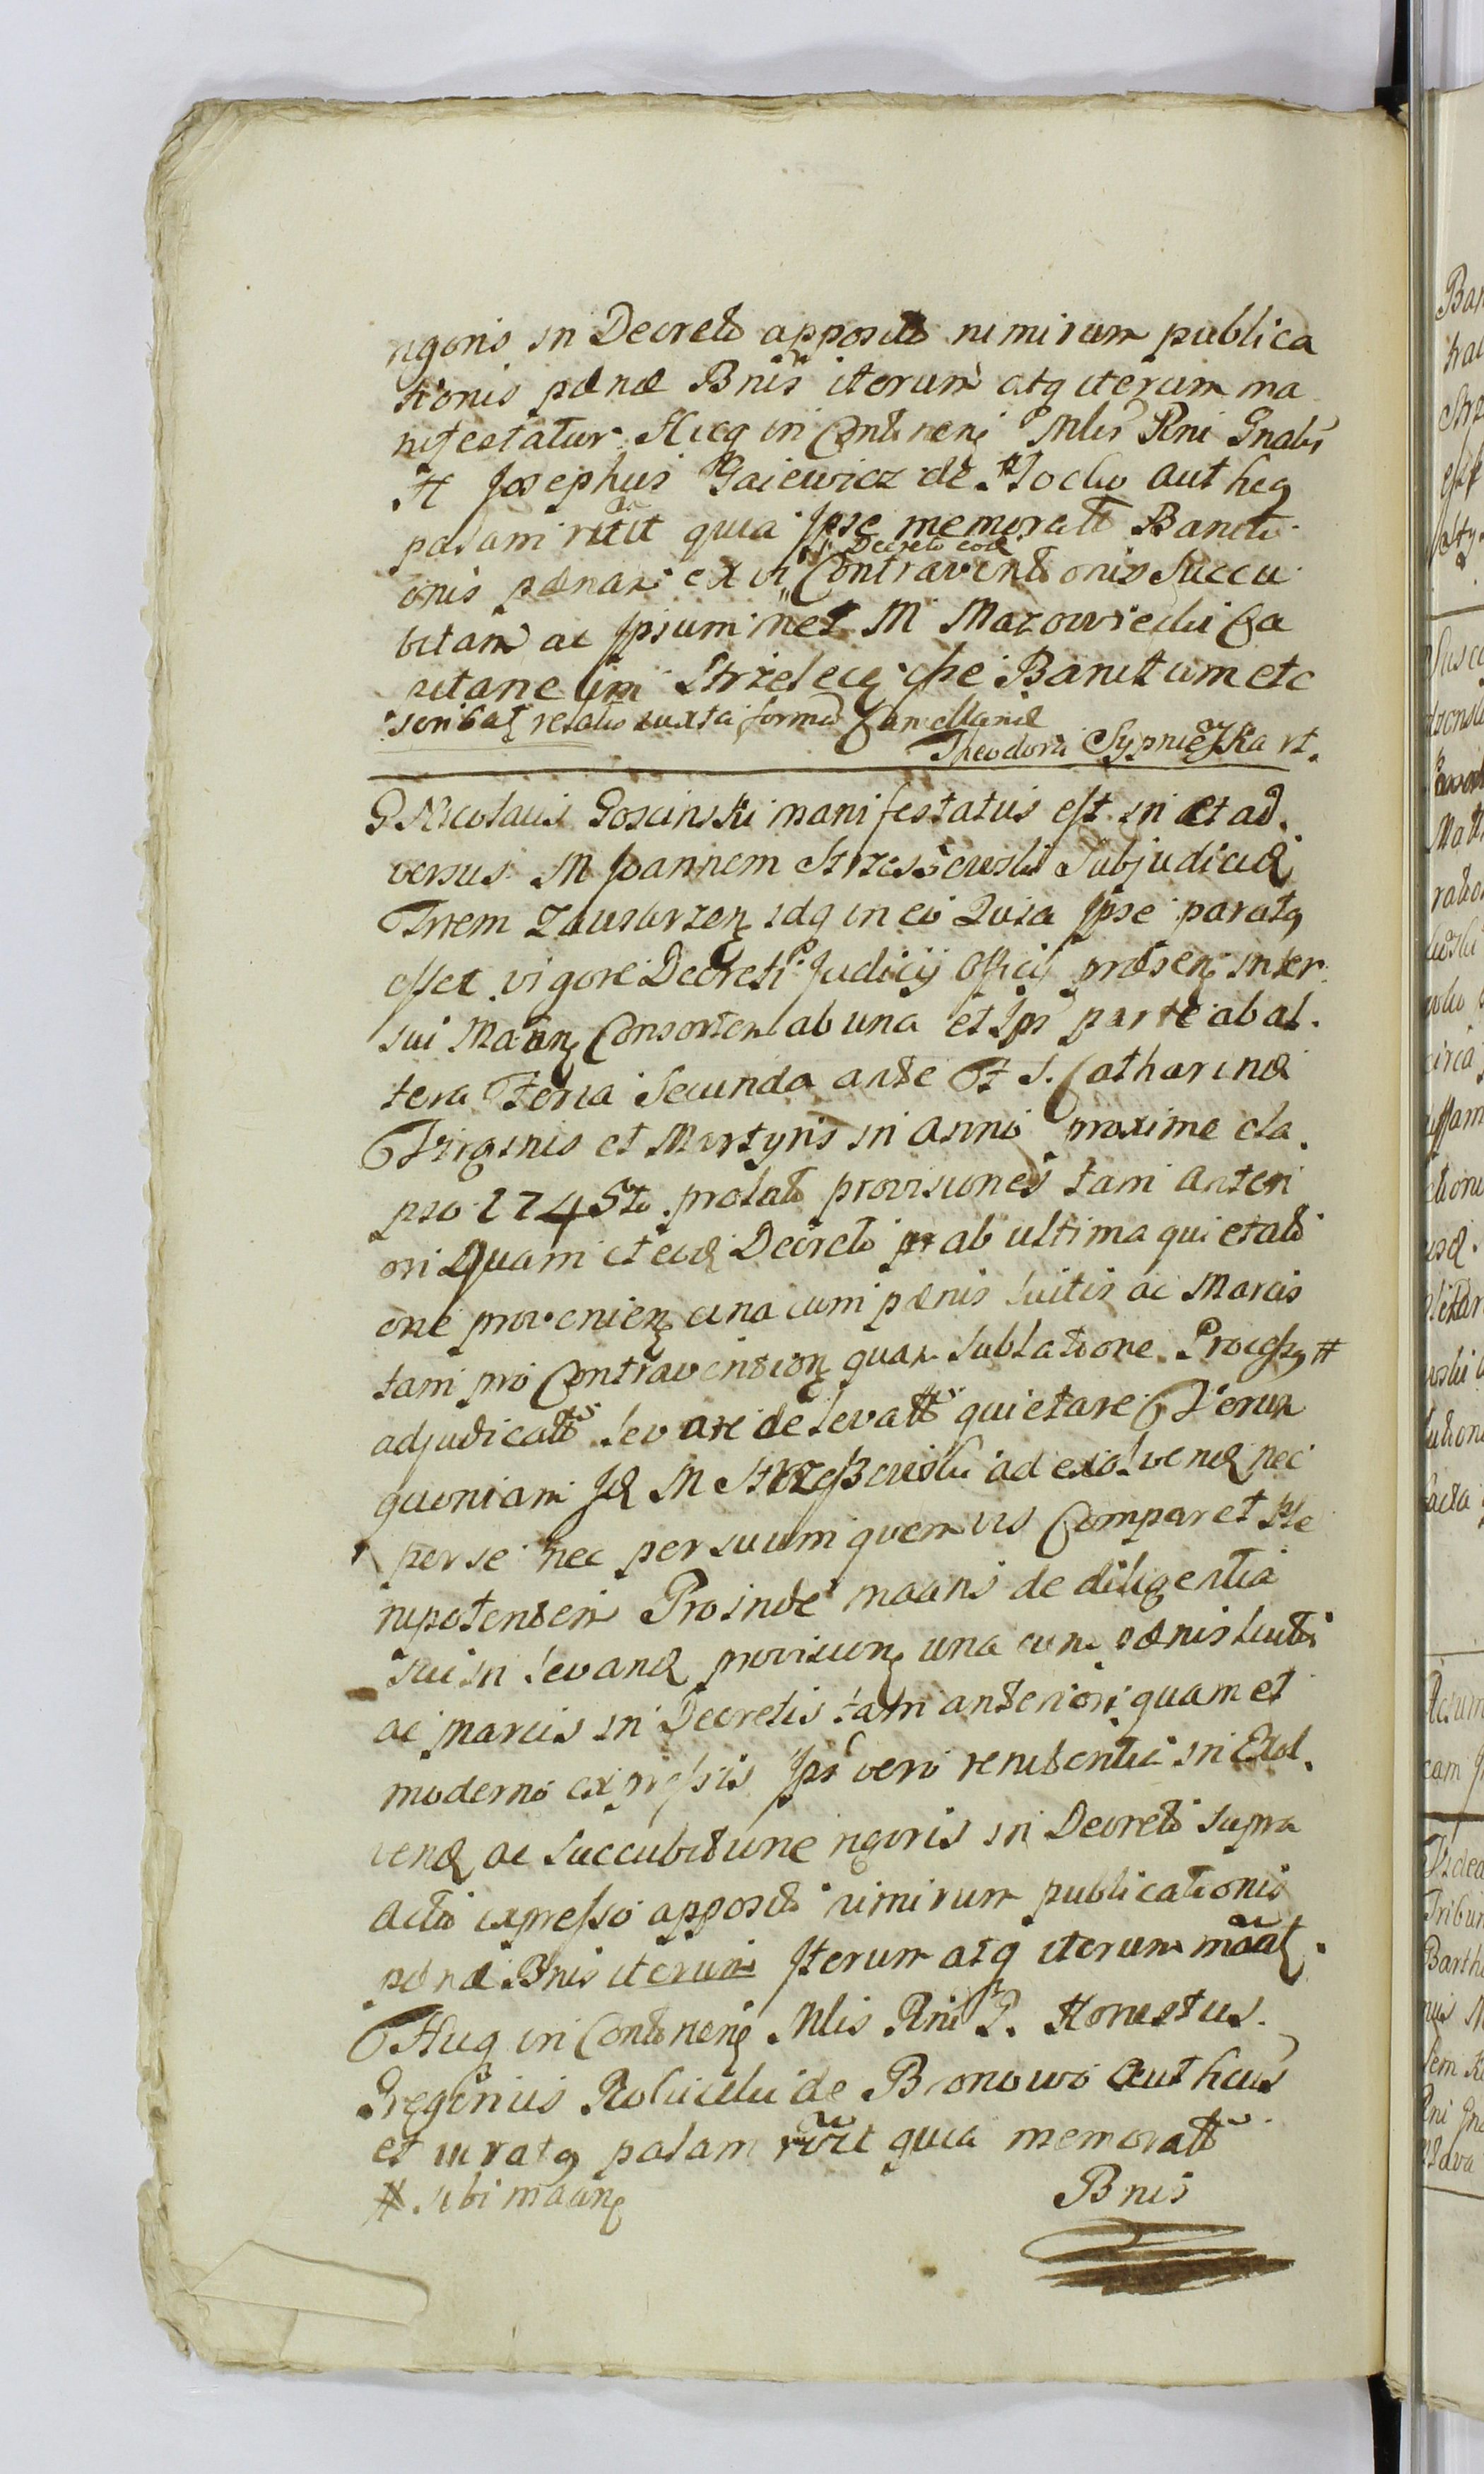 rigoris in Decreto apposito nimirum publica
tionis pœnæ Bnis iterum atq iterum ma
nifestatur Hicq in Continenti Mlis Rni Gnalis
H Josephus Gaiewicz de autheq
palam rtlit quia Ipse memorati Baniti
onis pœnam ex vi Decreto eod Contraventionis Succu
bitam ac Ipsummet M Mazowiecki Ca
pitaneum Strzelecq esse Banitum etc
scribat relatio iuxta formam Cancellariæ
Theodori Sypniewski rt.
G Nicolaus Goscinski manifestatus est in et ad
versus M Joannem Strzeszewski Subjudicem
Trrem Zawskrzen idq in eo Quia Ipse paratq
esset vigore Decreti Judicij Officij præsen inter
sui Maan Consortem ab una et Ipm parte ab al
tera Feria Secunda ante F S. Catharinæ
Virginis et Martyris in anno proxime ela
pso 1745to prolato provisiones tam anteri
ori Quam et eod Decreto ab ultima quietati
one provenien una cum pœnis luitis ac Marcis
tam pro Contravention quam sublatione Processq #
adjudicatis levare de levatis quietare Verum
quoniam Id M Strzeszewski ad exolvend nec
per se nec per suum quemvis Comparet Ple
nipotentem Proinde maans de diligentia
sui in levand provision una cum pœnis luitis
ac marcis in Decretis tam anteriori quam et
moderno expressis Ips vero renitentia in Exol
vend ac succubitione rigoris in Decreto supra
acto expresso apposito nimirum publicationis
pœnæ Bnis iterum Iterum atq iterum maat
Hicq in Continen Mlis Rni G. Honestus
Gregorius Rolnicki de Bronowo authcus
et iuratq palam rtlit quia memorati
# sibi maan
Bnis